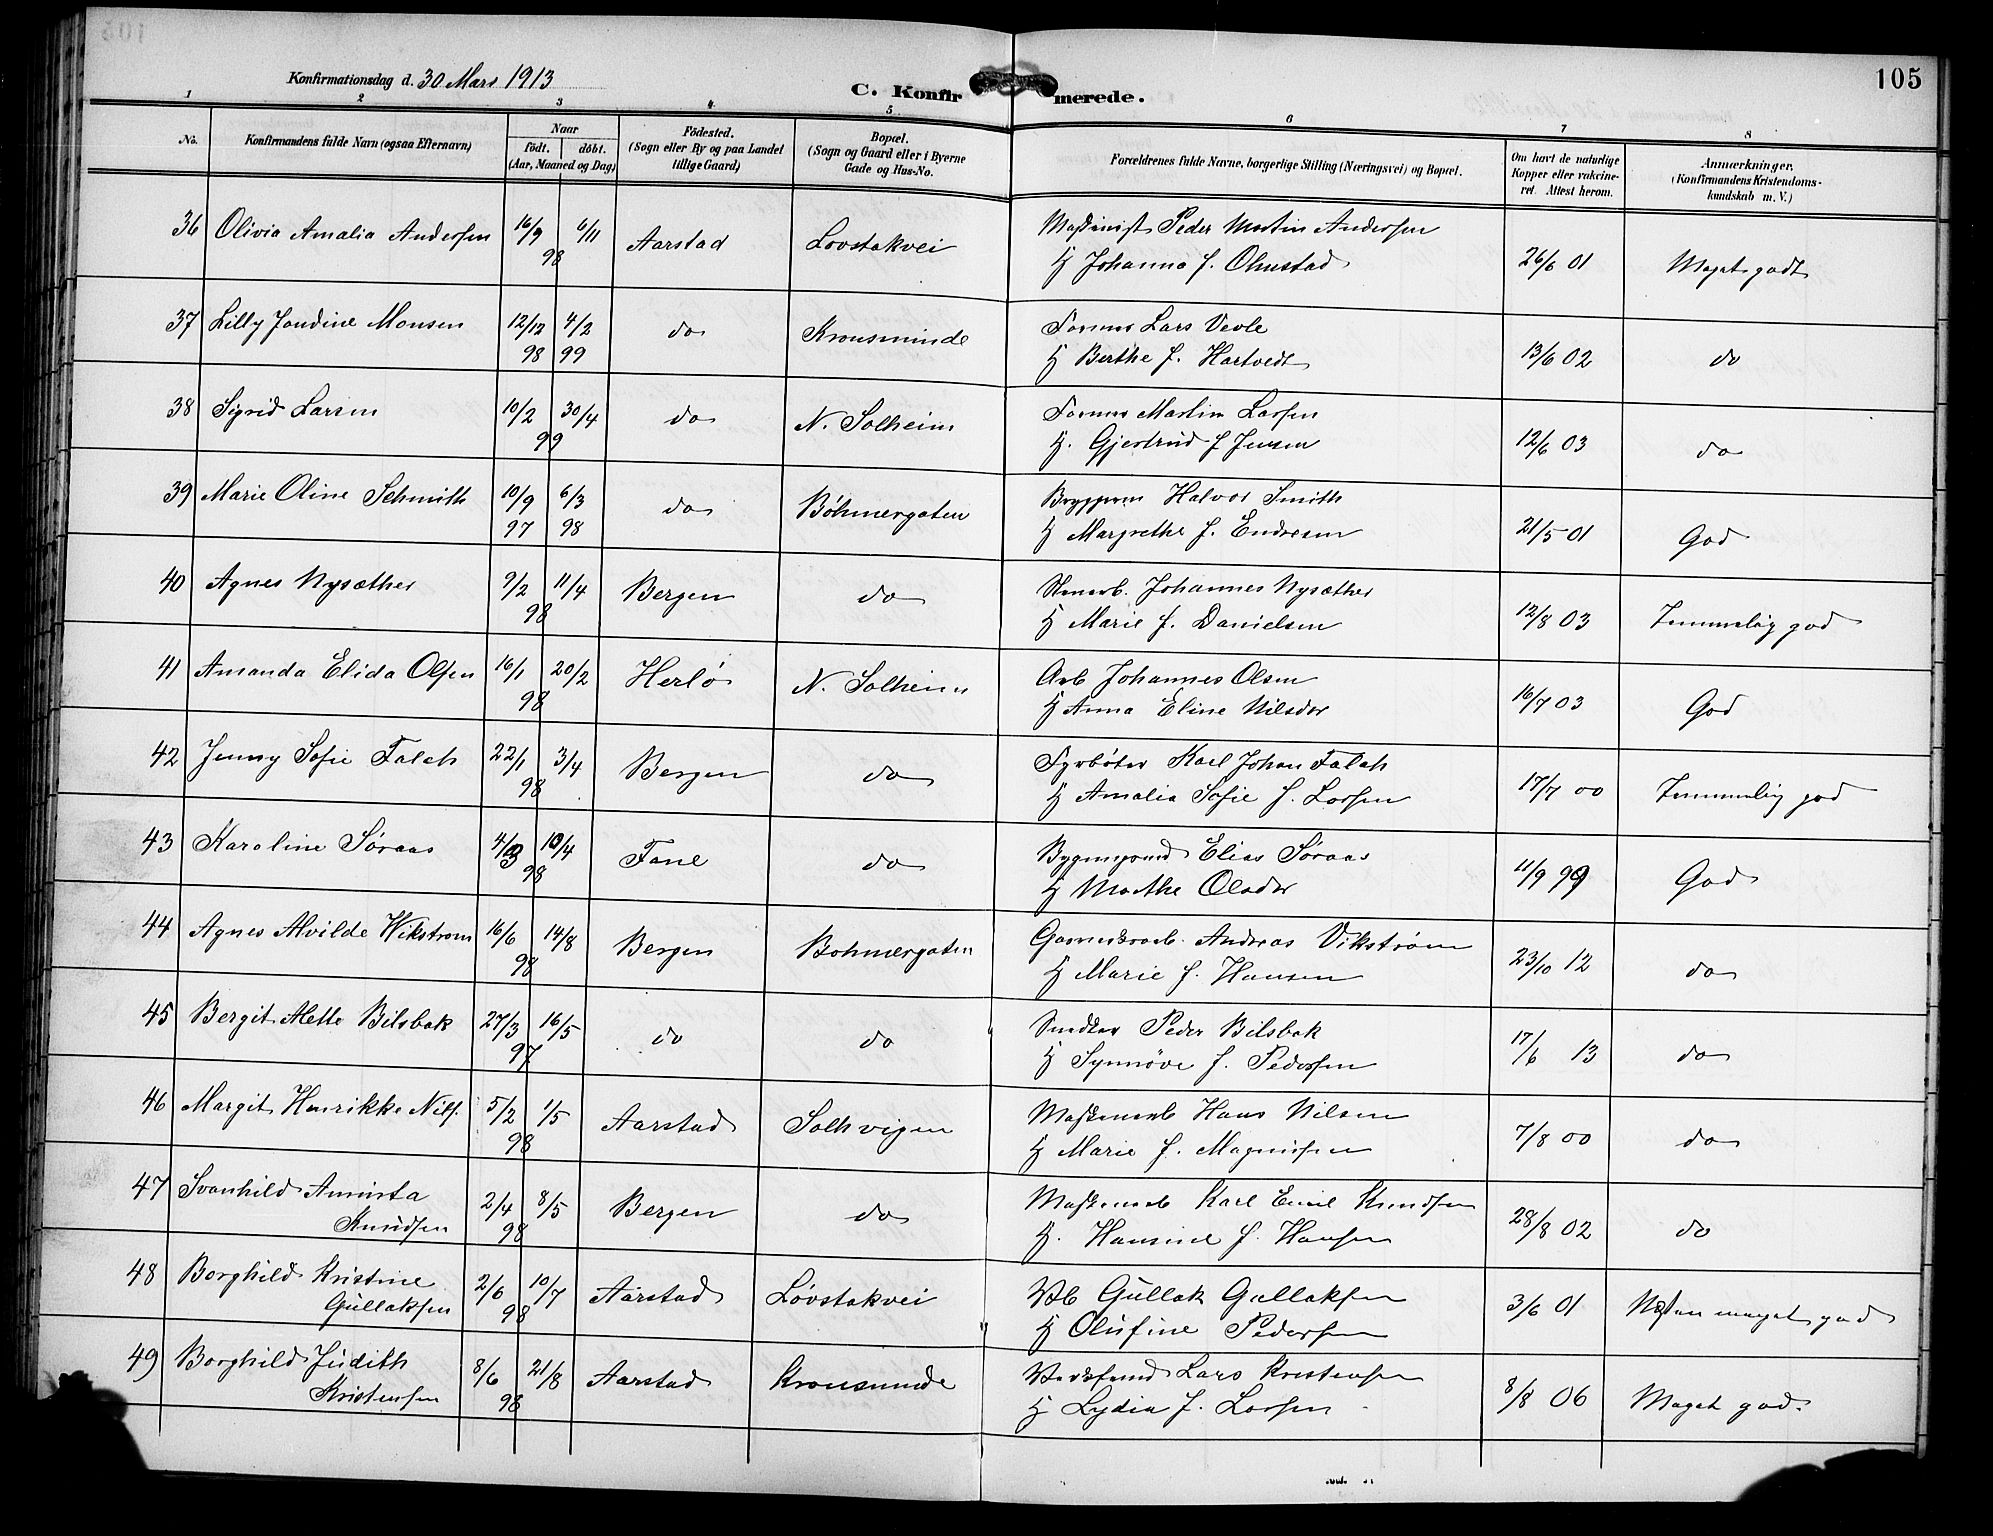 105
Konfirmationsdag d. 30 Mars 1913
C. Konfirmerede.
1 2 3 4 5 6 7 8
No. | Konfirmandens fulde Navn (ogsaa Efternavn) | Naar født. døbt. (Aar, Maaned og Dag) | Fødested. (Sogn eller By og paa Landet tillige Gaard) | Bopæl. (Sogn og Gaard eller i Byerne Gade og Hus-No. | Forældrenes fulde Navne, borgerlige Stilling (Næringsvei) og Bopæl. | Om havt de naturlige Kopper eller vakcineret. Attest herom. | Anmærkninger. (Konfirmandens Kristendomskundskab m. V.)
36 Olivia Amalia Andersen 16/9 6/11 98 Aarstad Lovstakvei Maskinist Peder Martin Andersen
H Johanna f. Ohnstad 26/6 01 Meget godt
37 Lilly Jondine Monsen 12/12 98 4/2 99 do Kronsminde Former Lars Vevle
H Berthe f. Hartvedt 13/6 02 do
38 Sigrid Larsen 10/2 30/4 99 do N. Solheim Former Martin Larsen
H. Gjertrud f Jensen 12/6 03 do
39 Marie Oline Schmith 10/9 97 6/3 98 do Böhmergaten Halvor Smith
H Margrethe f. Endresen 21/5 01 God
40 Agnes Nysæther 9/2 11/4 98 Bergen do Stenarb. Johannes Nysæther
H Marie f. Danielsen 12/8 03 Temmelig god
41 Amanda Elida Olsen 16/1 20/2 98 Herlø N. Solheim Arb Johannes Olsen
H Anna Eline Nilsdor 16/7 03 God
42 Jenny Sofie Falch 22/1 3/4 98 Bergen do Fyrbøter Karl Johan Falch
H Amalia Sofie f. Larsen 17/7 00 Temmelig god
43 Karoline Søraas 4/3 10/4 98 Fane do Elias Søraas
H Marthe Olsdor 11/9 99 God
44 Agnes Alvilde Wikstrom 16/6 14/8 98 Bergen Bohmergaten Andreas Vikstrøm
H Marie f. Hansen 23/10 12 do
45 Bergit Mette Bilsbak 27/3 16/5 97 do do Snedker Peder Bilsbak
H Synnøve f. Pedersen 17/6 13 do
46 Margit Henrikke Nils. 5/2 1/5 98 Aarstad Solhvigen Maskinarb Hans Nilsen
H Marie f. Magnussen 7/8 00 do
47 Svanhild Aminta
Knudsen 2/4 8/5 98 Bergen do Maskinarb Karl Emil Knudsen
H. Hansine f. Hansen 28/8 02 do
48 Borghild Kristine
Gullaksen 2/6 10/7 98 Aarstad Løvstakvei Gullak Gullaksen
H Olufine Pedersen 3/6 01 Næsten meget god
49 Borghild Judith
Kristensen 8/6 21/8 98 Aarstad Kronsminde Lars Kristensen
H Lydia f. Larsen 8/8 06 Meget god.